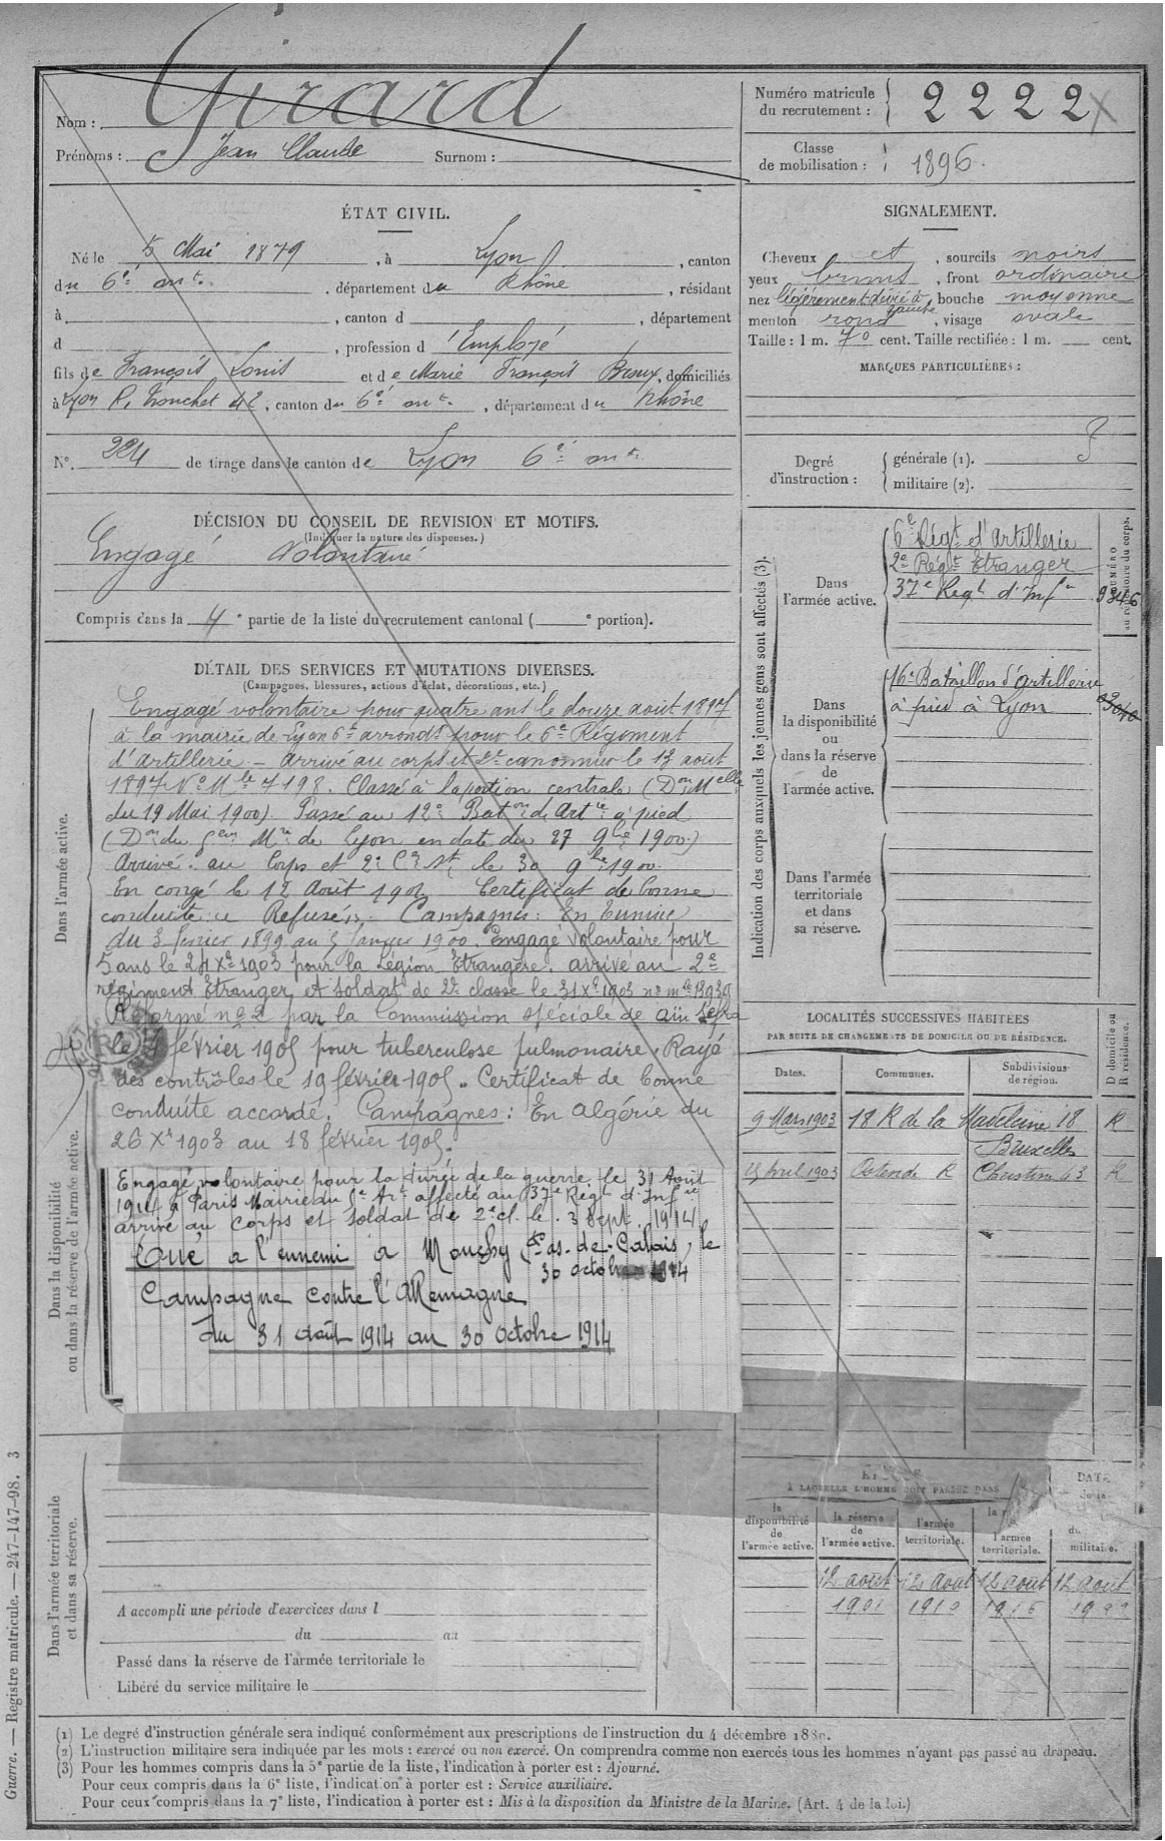 Nom : Girard
Prénoms : Jean Claude Surnom :
Numéro matricule
du recrutement : 2222
Classe
de mobilisation : 1896.
ÉTAT CIVIL.
Né le 5 Mai 1879, à Lyon, canton
du 6e arrt., département du Rhône, résidant
à , canton d , département
d , profession d'Employé
fils de François Louis et de Marie François Broux, domiciliés
à Lyon R. Tronchet 42, canton du 6e arrt., département du Rhône
N°. 224 de tirage dans le canton de Lyon 6e arrt
SIGNALEMENT.
Cheveux et, sourcils noirs
yeux bruns, front ordinaire
nez légèrement dévié à gauche, bouche moyenne
menton rond, visage ovale
Taille : 1 m. 70 cent. Taille rectifiée : 1 m. cent.
MARQUES PARTICULIÈRES :
Degré
d'instruction :
générale (1). 3
militaire (2).
DÉCISION DU CONSEIL DE REVISION ET MOTIFS.
(Indiquer la nature des dispenses.)
Engagé Volontaire
Compris dans la 4e partie de la liste du recrutement cantonal ( e portion).
DÉTAIL DES SERVICES ET MUTATIONS DIVERSES.
(Campagnes, blessures, actions d'éclat, décorations, etc.)
Dans l'armée active.
Engagé volontaire pour quatre ans le douze août 1897
à la mairie de Lyon 6e arrondt pour le 6e Régiment
d'Artillerie - Arrivé au corps et 2e canonnier le 13 août
1897 No Mle 7198. Classé à la portion centrale (Don Melle
du 19 Mai 1900). Passé au 12e Baton d'Artie à pied
(Don du Gem Mre de Lyon en date du 27 9bre 1900.)
Arrivé au Corps et 2e Cr St le 30 9bre 1900.
En congé le 12 Août 1901 Certificat de bonne
conduite " Refusé ". Campagnes : En Tunisie
du 3 février 1899 au 5 Janvier 1900. Engagé volontaire pour
5 ans le 24 Xbre 1903 pour la Légion Etrangère. arrivé au 2e
régiment Etranger et soldat de 2e classe le 31 Xbre 1903 no mle 13939
Réformé no 2 par la Commission spéciale de Aïn Sefra
le février 1905 pour tuberculose pulmonaire. Rayé
des contrôles le 19 février 1905. Certificat de bonne
conduite accordé. Campagnes : En Algérie du
26 Xbre 1903 au 18 février 1905.
Dans la disponibilité
ou dans la réserve de l'armée active.
Engagé volontaire pour la durée de la guerre le 31 Août
1914 à Paris Mairie du Art affecté au 37e Régt d'Infie
arrivé au corps et soldat de 2e cl. le 3 Sept. 1914
Tué à l'ennemi à Monchy Pas-de-Calais, le
30 octobre 1914
Campagne contre l'Allemagne
du 31 août 1914 au 30 octobre 1914
Indication des corps auxquels les jeunes gens sont affectés (3).
Dans
l'armée active.
6e Régt d'Artillerie
2e Régt Etranger
37e Regt d'Infie
NUMÉRO
au répertoire du corps.
9346
Dans
la disponibilité
ou
dans la réserve
de
l'armée active.
16e Bataillon d'artillerie
à pied à Lyon
Dans l'armée
territoriale
et dans
sa réserve.
LOCALITÉS SUCCESSIVES HABITÉES
PAR SUITE DE CHANGEMENTS DE DOMICILE OU DE RÉSIDENCE.
Dates. Communes. Subdivisions
de région. D domicile ou
R résidence.
9 Mars 1903 18 R de la Madeleine 18 R
Bruxelles
Avril 1903 Ostende R Christine 63 R
À LAQUELLE L'HOMME DOIT PASSER DANS
DATE
la
disponibilité
de
l'armée active.
la réserve
de
l'armée active.
l'armée
territoriale.
l'armée
territoriale.
militaire.
12 août 12 août 12 août 12 août
1901 1910 1916
Dans l'armée territoriale
et dans sa réserve.
A accompli une période d'exercices dans l
du au
Passé dans la réserve de l'armée territoriale le
Libéré du service militaire le
(1) Le degré d'instruction générale sera indiqué conformément aux prescriptions de l'instruction du 4 décembre 188 .
(2) L'instruction militaire sera indiquée par les mots : exercé ou non exercé. On comprendra comme non exercés tous les hommes n'ayant pas passé au drapeau.
(3) Pour les hommes compris dans la 5e partie de la liste, l'indication à porter est : Ajourné.
Pour ceux compris dans la 6e liste, l'indication à porter est : Service auxiliaire.
Pour ceux compris dans la 7e liste, l'indication à porter est : Mis à la disposition du Ministre de la Marine. (Art. 4 de la loi.)
Guerre. — Registre matricule. — 247-147-98. 3